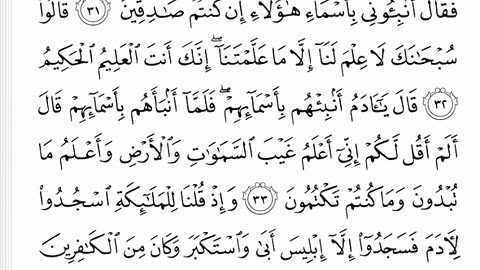 فَقَالَ أَنۢبِـُٔونِى بِأَسْمَآءِ هَـٰٓؤُلَآءِ إِن كُنتُمْ صَـٰدِقِينَ ٣١ قَالُوا۟
سُبْحَـٰنَكَ لَا عِلْمَ لَنَآ إِلَّا مَا عَلَّمْتَنَآ ۖ إِنَّكَ أَنتَ ٱلْعَلِيمُ ٱلْحَكِيمُ
٣٢ قَالَ يَـٰٓـَٔادَمُ أَنۢبِئْهُم بِأَسْمَآئِهِمْ ۖ فَلَمَّآ أَنۢبَأَهُم بِأَسْمَآئِهِمْ قَالَ
أَلَمْ أَقُل لَّكُمْ إِنِّىٓ أَعْلَمُ غَيْبَ ٱلسَّمَـٰوَٰتِ وَٱلْأَرْضِ وَأَعْلَمُ مَا
تُبْدُونَ وَمَا كُنتُمْ تَكْتُمُونَ ٣٣ وَإِذْ قُلْنَا لِلْمَلَـٰٓئِكَةِ ٱسْجُدُوا۟
لِـَٔادَمَ فَسَجَدُوٓا۟ إِلَّآ إِبْلِيسَ أَبَىٰ وَٱسْتَكْبَرَ وَكَانَ مِنَ ٱلْكَـٰفِرِينَ